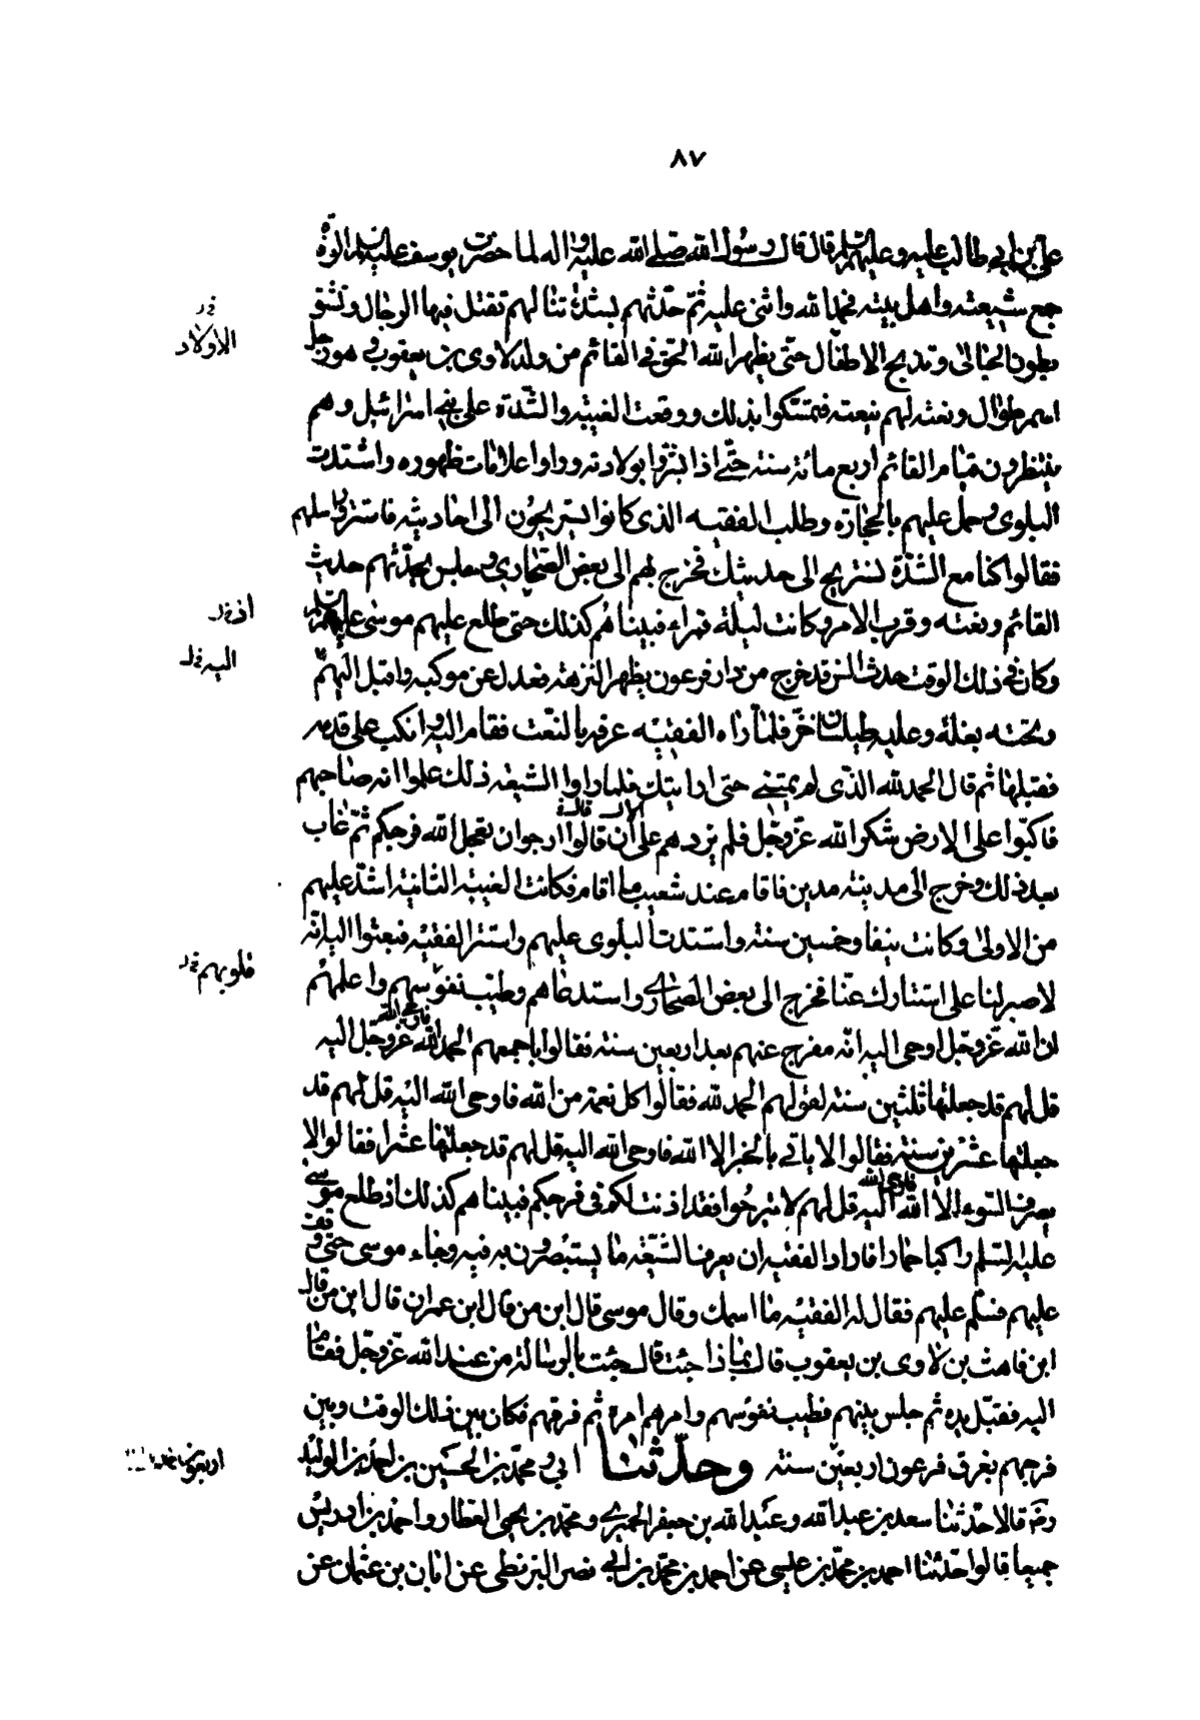 ٨٧
علي بن ابي طالب عليه وعليهم السلم قال قال رسول الله صلى الله عليه واله لما حضرت يوسف عليه السلم الوفاة
جمع شيعته واهل بيته فحمد الله واثنى عليه ثم حدثهم بشدة تنالهم تقتل فيها الرجال وتشق
بطون الحبالى وتذبح الاطفال حتى يظهر الله الحق في القائم من ولد لاوى بن يعقوب وهو رجل
اسمر طوال ونعته لهم بنعته فتمسكوا بذلك ووقعت الغيبة والشدة على بني اسرائيل وهم
منتظرون قيام القائم اربع مائة سنة حتى اذا بشروا بولادته ورأوا علامات ظهوره واشتدت
البلوى وحمل عليهم بالحجارة وطلب الفقيه الذى كانوا يستريحون الى احاديثه فاستتر وراسلهم
فقالوا كنا مع الشدة نستريح الى حديثك فخرج بهم الى بعض الصحارى وجلس يحدثهم حديث
القائم ونعته وقرب الامر وكانت ليلة قمراء فبيناهم كذلك حتى طلع عليهم موسى عليه السلم
وكان في ذلك الوقت حدث السن قد خرج من دار فرعون يظهر النزهة فعدل عن موكبه واقبل اليهم
وتحته بغلة وعليه طيلسان خز فلما راه الفقيه عرفه بالنعت فقام اليه وانكب على قدميه
فقبلها ثم قال الحمد لله الذى لم يمتني حتى ارانيك فلما راوا الشيعة ذلك علموا انه صاحبهم
فاكبوا على الارض شكرا لله عز وجل فلم يزدهم على ان قالوا ارجوان يعجل الله فرجكم ثم غاب
بعد ذلك وخرج الى مدينة مدين فاقام عند شعيب ما اقام فكانت الغيبة الثانية اشد عليهم
من الاولى وكانت نيفا وخمسين سنة واشتدت البلوى عليهم واستتر الفقيه فبعثوا اليه انه
لا صبر لنا على استتارك عنا فخرج الى بعض الصحارى واستدعاهم وطيب نفوسهم واعلمهم
ان الله عز وجل اوحى اليه انه مفرج عنهم بعد اربعين سنة فقالوا باجمعهم الحمد لله فاوحى الله عز وجل اليه
قل لهم قد جعلتها ثلثين سنة لقولهم الحمد لله فقالوا كل نعمة من الله فاوحى الله اليه قل لهم قد
جعلتها عشرين سنة فقالوا لا ياتي بالخير الا الله فاوحى الله اليه قل لهم قد جعلتها عشرا فقالوا لا
يصرف السوء الا الله فاوحى الله اليه قل لهم لا تبرحوا فقد اذنت لكم في فرجكم فبيناهم كذلك اذ طلع موسى
عليه السلم راكبا حمارا فاراد الفقيه ان يعرف الشيعة ما يستبصرون به فيه وجاء موسى حتى وقف
عليهم فسلم عليهم فقال له الفقيه ما اسمك وقال موسى قال ابن من قال ابن عمران قال ابن من قال
ابن فاهث بن لاوى بن يعقوب قال بماذا جئت قال جئت بالرسالة من عند الله عز وجل فقام
اليه فقبل يده ثم جلس بينهم فطيب نفوسهم وامرهم امره ثم فرقهم فكان بين ذلك الوقت وبين
فرجهم بغرق فرعون اربعين سنة وحدثنا ابي ومحمد بن الحسن بن احمد بن الوليد
رضه قالا حدثنا سعد بن عبد الله وعبد الله بن جعفر الحميري ومحمد بن يحيى العطار واحمد بن ادريس
جميعا قالوا حدثنا احمد بن محمد بن عيسى عن احمد بن محمد بن ابي نصر البزنطى عن ابان بن عثمان عن
الاولاد
اذ خ ر
اليه خ ل
قلوبهم خ ر
اربعون